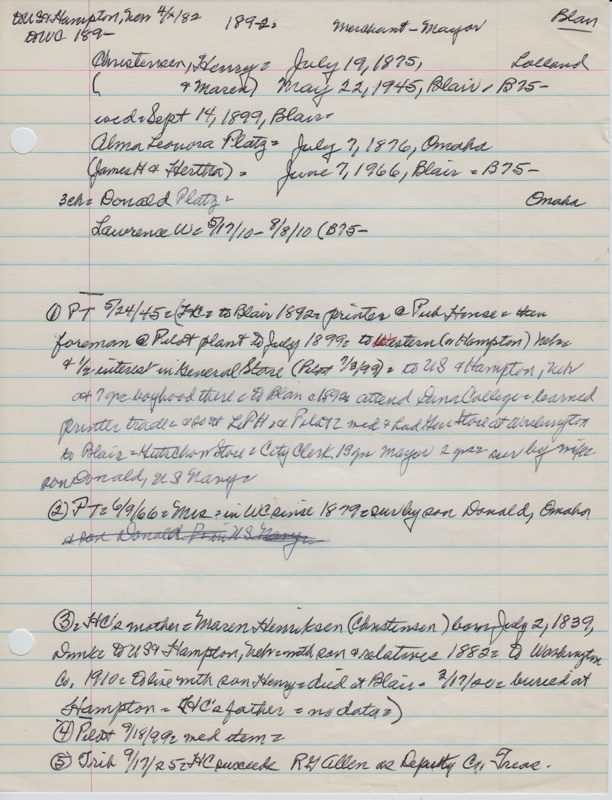 DUS+Hampton, Neb 4/-182 189-2= Merchant-Mayor Blair
DWC 189-
Christensen, Henry = July 19, 1875, Lolland
( & Maren) May 22, 1945, Blair = B75-
wed = Sept 14, 1899, Blair =
Alma Leonora Platz = July 7, 1876, Omaha
(James H & Hertha) = June 7, 1966, Blair = B75-
3ch = Donald Platz = Omaha
Lawrence W = 5/17/10 - 8/8/10 (B75-
① PT 5/24/45 = (HC = to Blair 1892 = printer @ Pub House =
foreman @ Pilot plant to July 1899 = to Western (or Hampton) Neb
& 1/2 interest in General Store (Pilot 7/3/99) = to US & Hampton, Neb
at 7 yrs boyhood there = to Blair c 1892 attend Dana College = learned
printer trade = @ LPH & Pilot = wed & had Gen Store at Washington
to Blair = Hutchson Store = City Clerk 13 yr mayor 2 yrs = sur by wife
son Donald, US Navy =
② PT = 6/9/66 = Mrs = in WC since 1879 = sur by son Donald, Omaha
& son Donald Pr in US Navy =
③ = HC's mother = Maren Henriksen (Christensen) born July 2, 1839,
Dmk = to US & Hampton, Neb = with son & relatives 1882 = to Washington
Co, 1910 = to live with son Henry = died at Blair = 2/17/20 = buried at
Hampton = (HC's father = no data =)
④ Pilot 9/18/99 = wed item =
⑤ Trib 9/17/25 = HC succeeds RG Allen as Deputy Co, Treas.